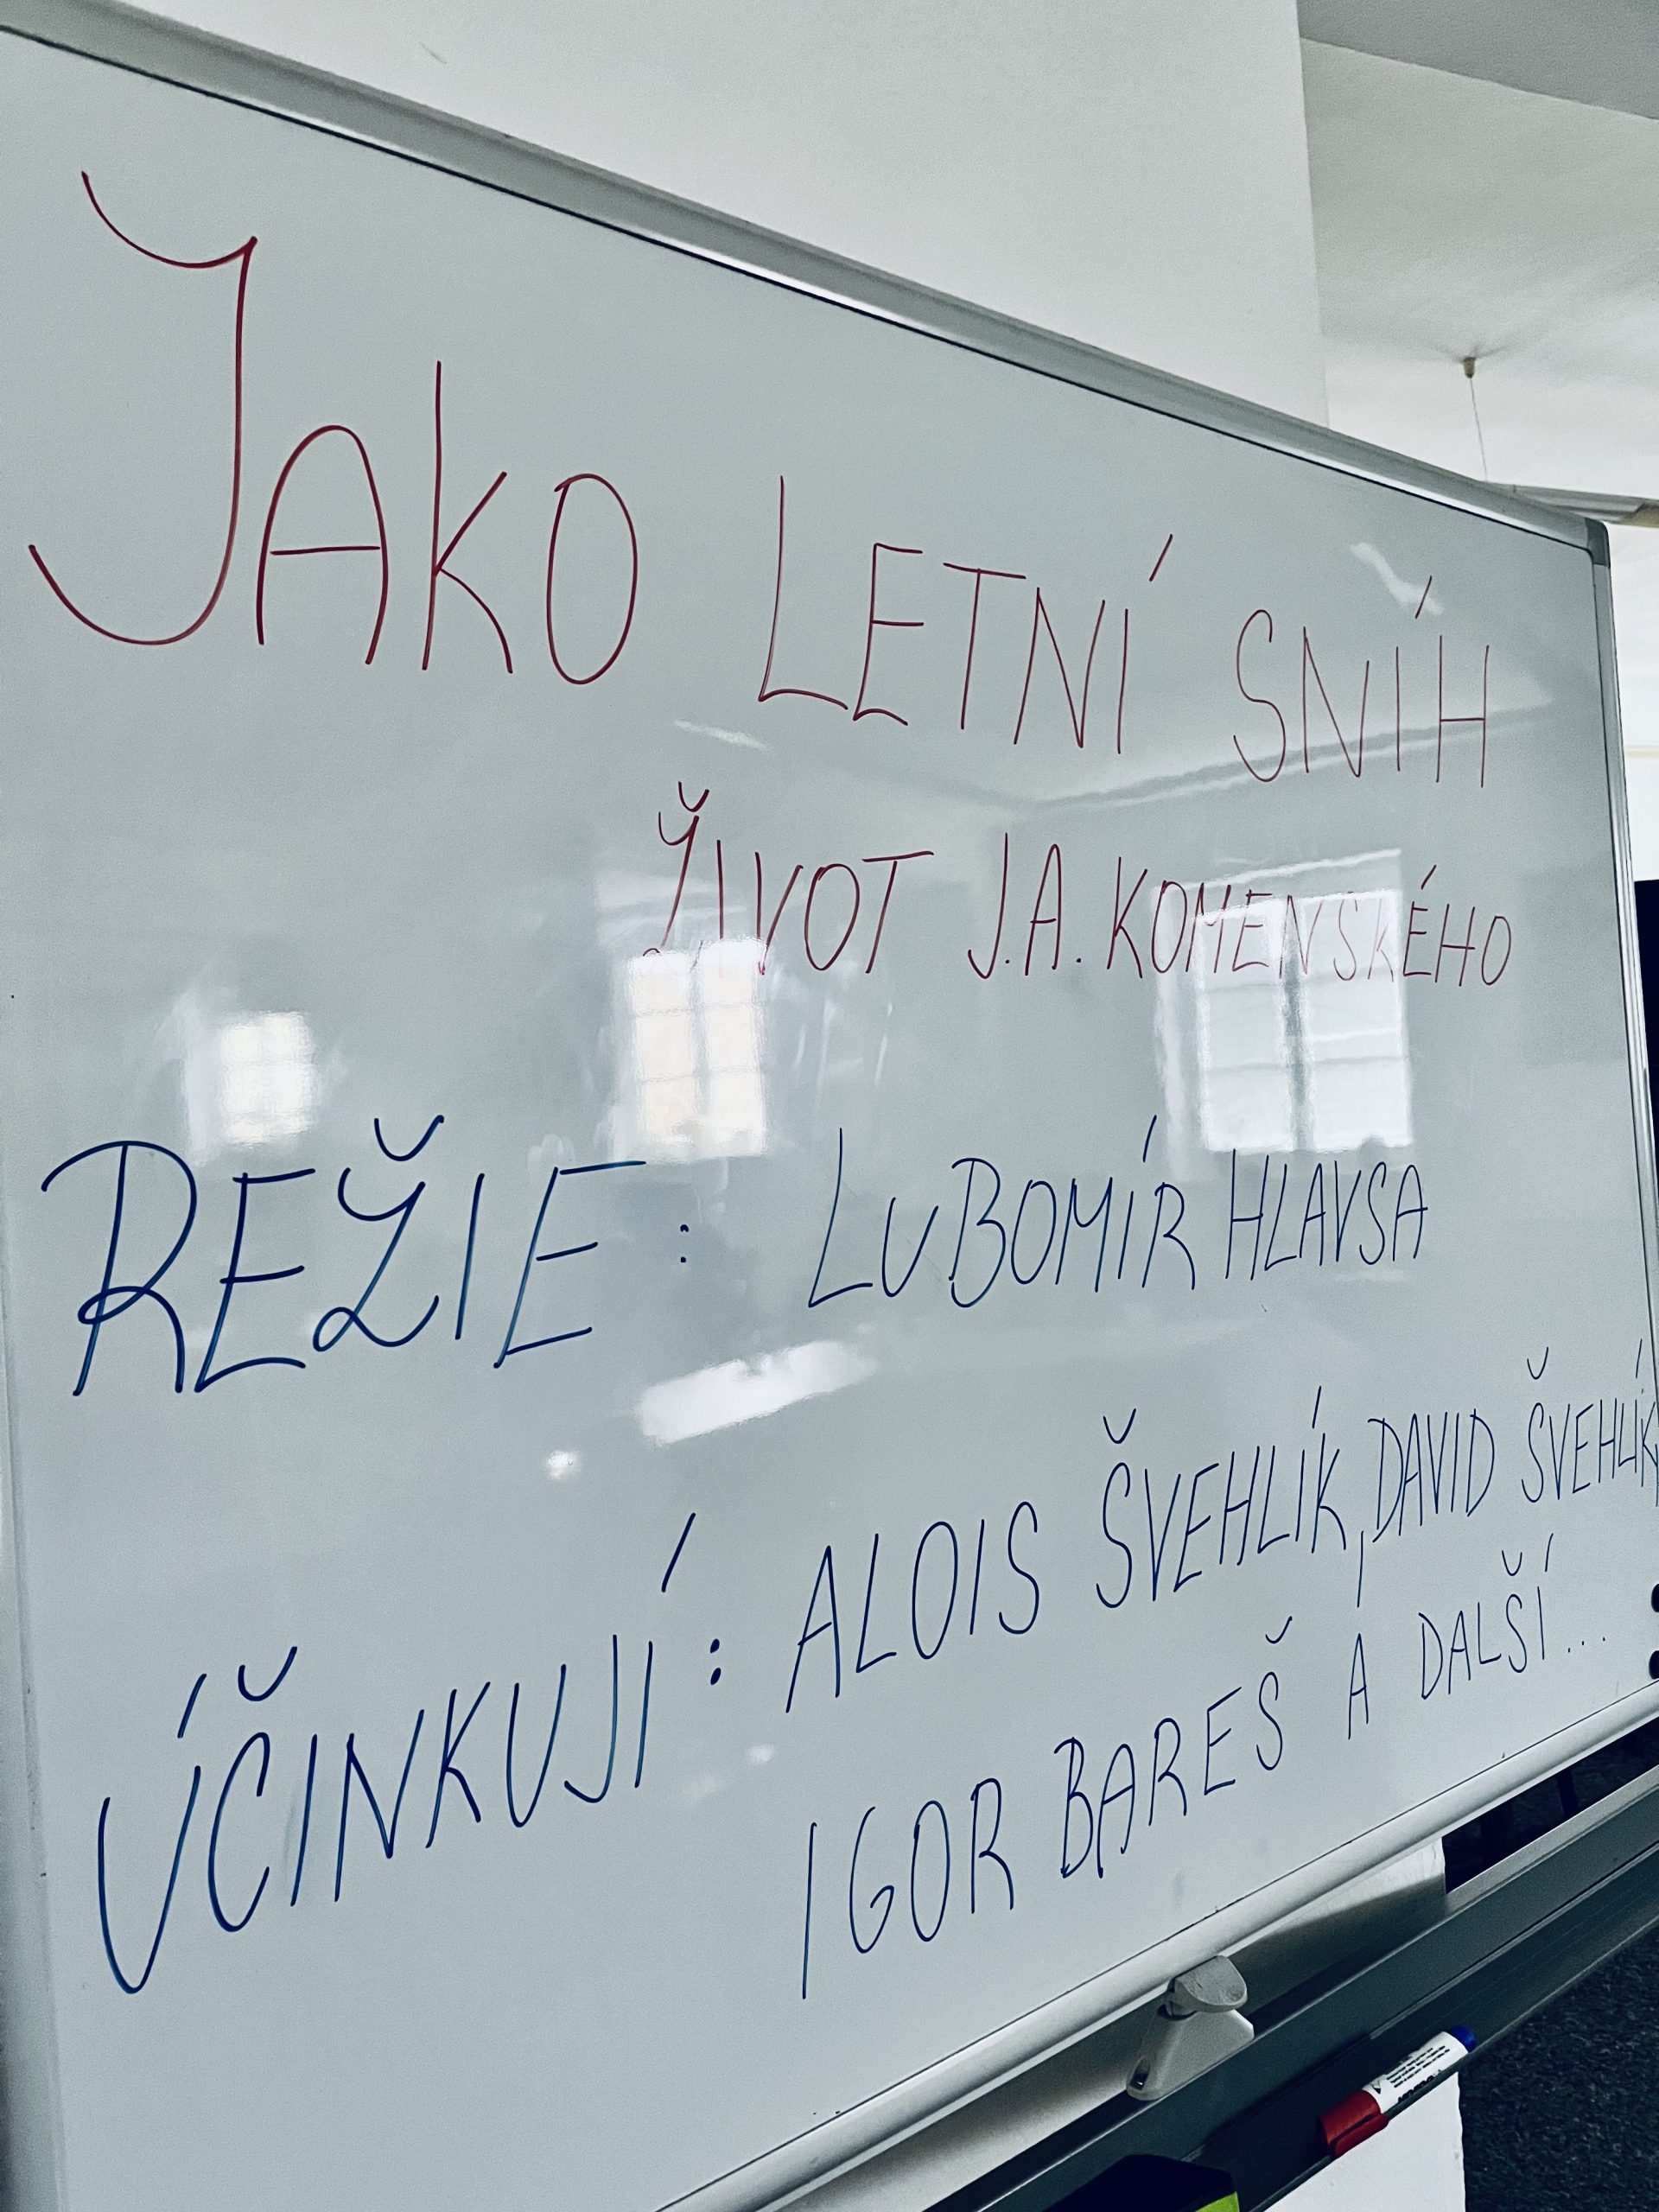 JAKO LETNÍ SNÍH
ŽIVOT J.A. KOMENSKÉHO
REŽIE: LUBOMÍR HLAVSA
ÚČINKUJÍ: ALOIS ŠVEHLÍK, DAVID ŠVEHLÍK,
IGOR BAREŠ A DALŠÍ...